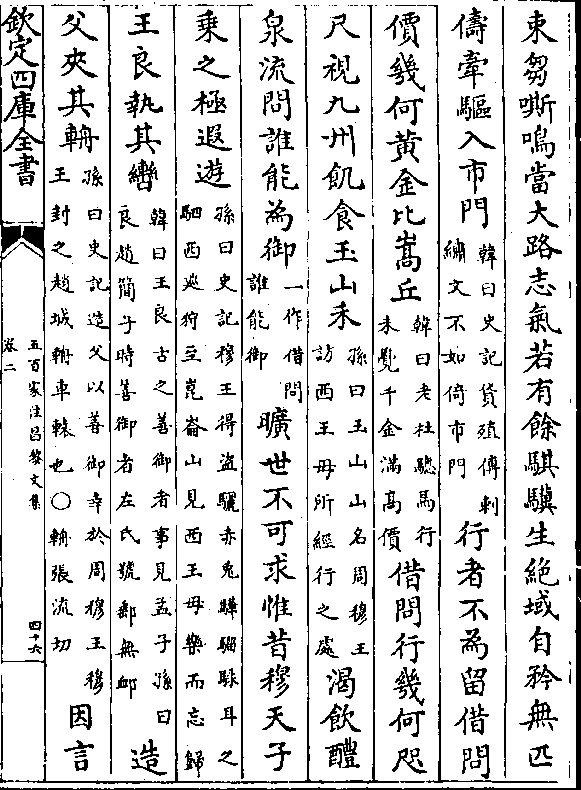 束芻嘶鳴當大路志氣若有餘騏驥生絕域自矜無匹
儔牽驅入市門韓曰史記貨殖傳刺繡文不如倚市門行者不為留借問
價幾何黃金比嵩丘韓曰老杜驄馬行未覺千金滿高價借問行幾何咫
尺視九州飢食玉山禾孫曰玉山山名周穆王訪西王母所經行之處渴飲醴
泉流問誰能為御一作借問誰能御曠世不可求惟昔穆天子
乘之極遐遊孫曰史記穆王得盜驪赤兔驊騮騄耳之駟西巡狩至崑崙山見西王母樂而忘歸
王良執其轡韓曰王良古之善御者事見孟子孫曰良趙簡子時善御者左氏號郵無卹造
父夾其輈孫曰史記造父以善御幸於周穆王穆王封之趙城輈車轅也○輈張流切因言
欽定四庫全書
五百家注昌黎文集
卷二
四十六